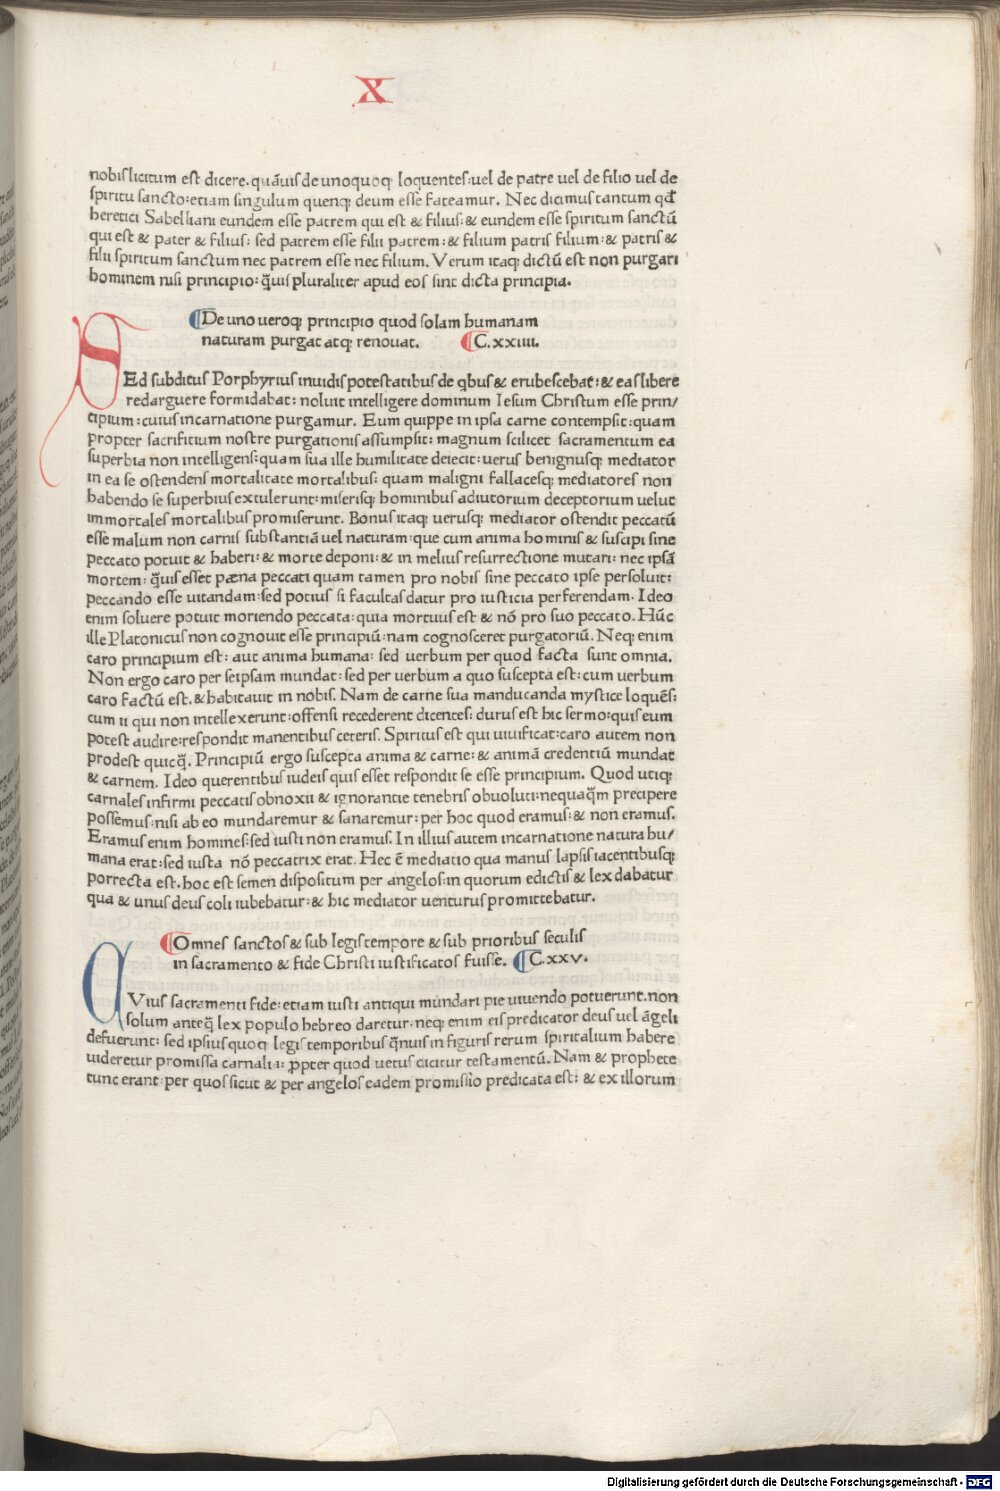 X
nobis licitum est dicere. quāuis de unoquoq; loquentes: uel de patre uel de filio uel de
spiritu sancto: etiam singulum quenq; deum esse fateamur. Nec dicimus tantum qđ
heretici Sabelliani eundem esse patrem qui est & filius: & eundem esse spiritum sanctū
qui est & pater & filius: sed patrem esse filii patrem: & filium patris filium: & patris &
filii spiritum sanctum nec patrem esse nec filium. Verum itaq; dictū est non purgari
hominem nisi principio: q̄uis pluraliter apud eos sint dicta principia.
¶De uno ueroq; principio quod solam humanam
naturam purgat atq; renouat. ¶C.xxiiii.
SEd subditus Porphyrius inuidis potestatibus de qbus & erubescebat: & eas libere
redarguere formidabat: noluit intelligere dominum Iesum Christum esse prin/
cipium: cuius incarnatione purgamur. Eum quippe in ipsa carne contempsit: quam
propter sacrificium nostre purgationis assumpsit: magnum scilicet sacramentum ea
superbia non intelligens: quam sua ille humilitate deiecit: uerus benignusq; mediator
in ea se ostendens mortalitate mortalibus: quam maligni fallacesq; mediatores non
habendo se superbius extulerunt: miserisq; hominibus adiutorium deceptorium uelut
immortales mortalibus promiserunt. Bonus itaq; uerusq; mediator ostendit peccatū
esse malum non carnis substantiā uel naturam: que cum anima hominis & suscipi sine
peccato potuit & haberi: & morte deponi: & in melius resurrectione mutari: nec ipsā
mortem: q̄uis esset pæna peccati quam tamen pro nobis sine peccato ipse persoluit:
peccando esse uitandam: sed potius si facultas datur pro iusticia perferendam. Ideo
enim soluere potuit moriendo peccata: quia mortuus est & nō pro suo peccato. Hūc
ille Platonicus non cognouit esse principiū: nam cognosceret purgatoriū. Neq; enim
caro principium est: aut anima humana: sed uerbum per quod facta sunt omnia.
Non ergo caro per seipsam mundat: sed per uerbum a quo suscepta est: cum uerbum
caro factū est. & habitauit in nobis. Nam de carne sua manducanda mystice loquēs:
cum ii qui non intellexerunt: offensi recederent dicentes: durus est hic sermo: quis eum
potest audire: respondit manentibus ceteris. Spiritus est qui uiuificat: caro autem non
prodest quicq̄. Principiū ergo suscepta anima & carne: & animā credentiū mundat
& carnem. Ideo querentibus iudeis quis esset respondit se esse principium. Quod utiq;
carnales infirmi peccatis obnoxii & ignorantie tenebris obuoluti: nequaq̄m precipere
possemus: nisi ab eo mundaremur & sanaremur: per hoc quod eramus: & non eramus.
Eramus enim homines: sed iusti non eramus. In illius autem incarnatione natura hu/
mana erat: sed iusta nō peccatrix erat. Hec ē mediatio qua manus lapsis iacentibusq;
porrecta est. hoc est semen dispositum per angelos: in quorum edictis & lex dabatur
qua & unus deus coli iubebatur: & hic mediator uenturus promittebatur.
¶Omnes sanctos & sub legis tempore & sub prioribus seculis
in sacramento & fide Christi iustificatos fuisse. ¶C.xxv.
CVius sacramenti fide: etiam iusti antiqui mundari pie uiuendo potuerunt. non
solum anteq̄ lex populo hebreo daretur: neq; enim eis predicator deus uel āgeli
defuerunt: sed ipsius quoq; legis temporibus q̄nuis in figuris rerum spiritalium habere
uideretur promissa carnalia: ꝓpter quod uetus dicitur testamentū. Nam & prophete
tunc erant: per quos sicut & per angelos eadem promissio predicata est: & ex illorum
Digitalisierung gefördert durch die Deutsche Forschungsgemeinschaft - DFG